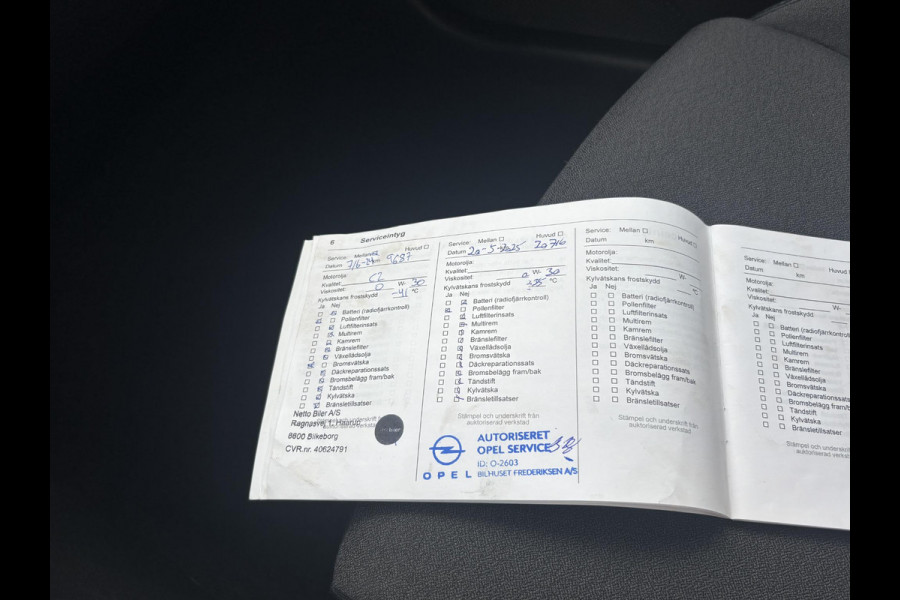 6 Serviceintyg
Service: Mellan ☐ Huvud ☐
Datum 9687
Motorolja:
Kvalitet: C2
Viskositet: 0 W- 30
Kylvätskans frostskydd -41 °C
Ja Nej
Batteri (radiofjärrkontroll)
Pollenfilter
Luftfilterinsats
Multirem
Kamrem
Bränslefilter
Växellådsolja
Bromsvätska
Däckreparationssats
Bromsbelägg fram/bak
Tändstift
Kylvätska
Bränsletillsatser
Netto Biler A/S
Ragnasvej 1, Haurup
8800 Bilkeborg
CVR.nr. 40624791
Service: Mellan ☐ Huvud ☐
Datum 20-5-2025 20716
Motorolja:
Kvalitet:
Viskositet: 0 W- 30
Kylvätskans frostskydd °C
Ja Nej
Batteri (radiofjärrkontroll)
Pollenfilter
Luftfilterinsats
Multirem
Kamrem
Bränslefilter
Växellådsolja
Bromsvätska
Däckreparationssats
Bromsbelägg fram/bak
Tändstift
Kylvätska
Bränsletillsatser
Stämpel och underskrift från
auktoriserad verkstad
AUTORISERET
OPEL SERVICE
ID: O-2603
OPEL BILHUSET FREDERIKSEN A/S
Service: Mellan ☐ Huvud ☐
Datum km
Motorolja:
Kvalitet:
Viskositet: W-
Kylvätskans frostskydd °C
Ja Nej
Batteri (radiofjärrkontroll)
Pollenfilter
Luftfilterinsats
Multirem
Kamrem
Bränslefilter
Växellådsolja
Bromsvätska
Däckreparationssats
Bromsbelägg fram/bak
Tändstift
Kylvätska
Bränsletillsatser
Stämpel och underskrift från
auktoriserad verkstad
Service: Mellan ☐ Huvud
Datum km
Motorolja:
Kvalitet:
Viskositet: W-
Kylvätskans frostskydd
Ja Nej
Batteri (radiofjärrkontroll
Pollenfilter
Luftfilterinsats
Multirem
Kamrem
Bränslefilter
Växellådsolja
Bromsvätska
Däckreparationssats
Bromsbelägg fram/b
Tändstift
Kylvätska
Bränsletillsatser
Stämpel och underskrift
auktoriserad verksta